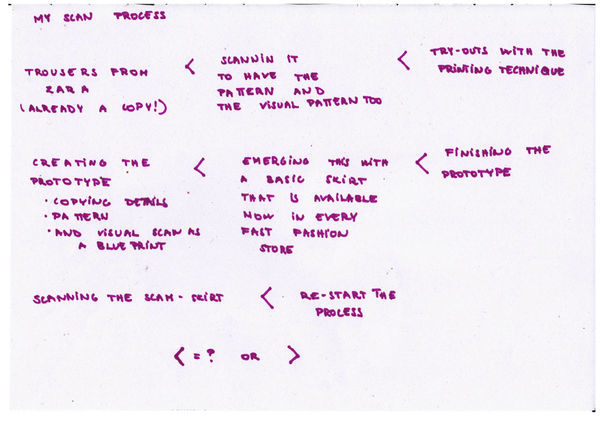 MY SCAN PROCESS
TROUSERS FROM
ZARA
(ALREADY A COPY!)
<
SCANNIN IT
TO HAVE THE
PATTERN AND
THE VISUAL PATTERN TOO
<
TRY-OUTS WITH THE
PRINTING TECHNIQUE
CREATING THE
PROTOTYPE
· COPYING DETAILS
· PATTERN
· AND VISUAL SCAN AS
A BLUEPRINT
<
EMERGING THIS WITH
A BASIC SKIRT
THAT IS AVAILABLE
NOW IN EVERY
FAST FASHION
STORE
<
FINISHING THE
PROTOTYPE
SCANNING THE SCAM-SKIRT
<
RE-START THE
PROCESS
< = ? OR >